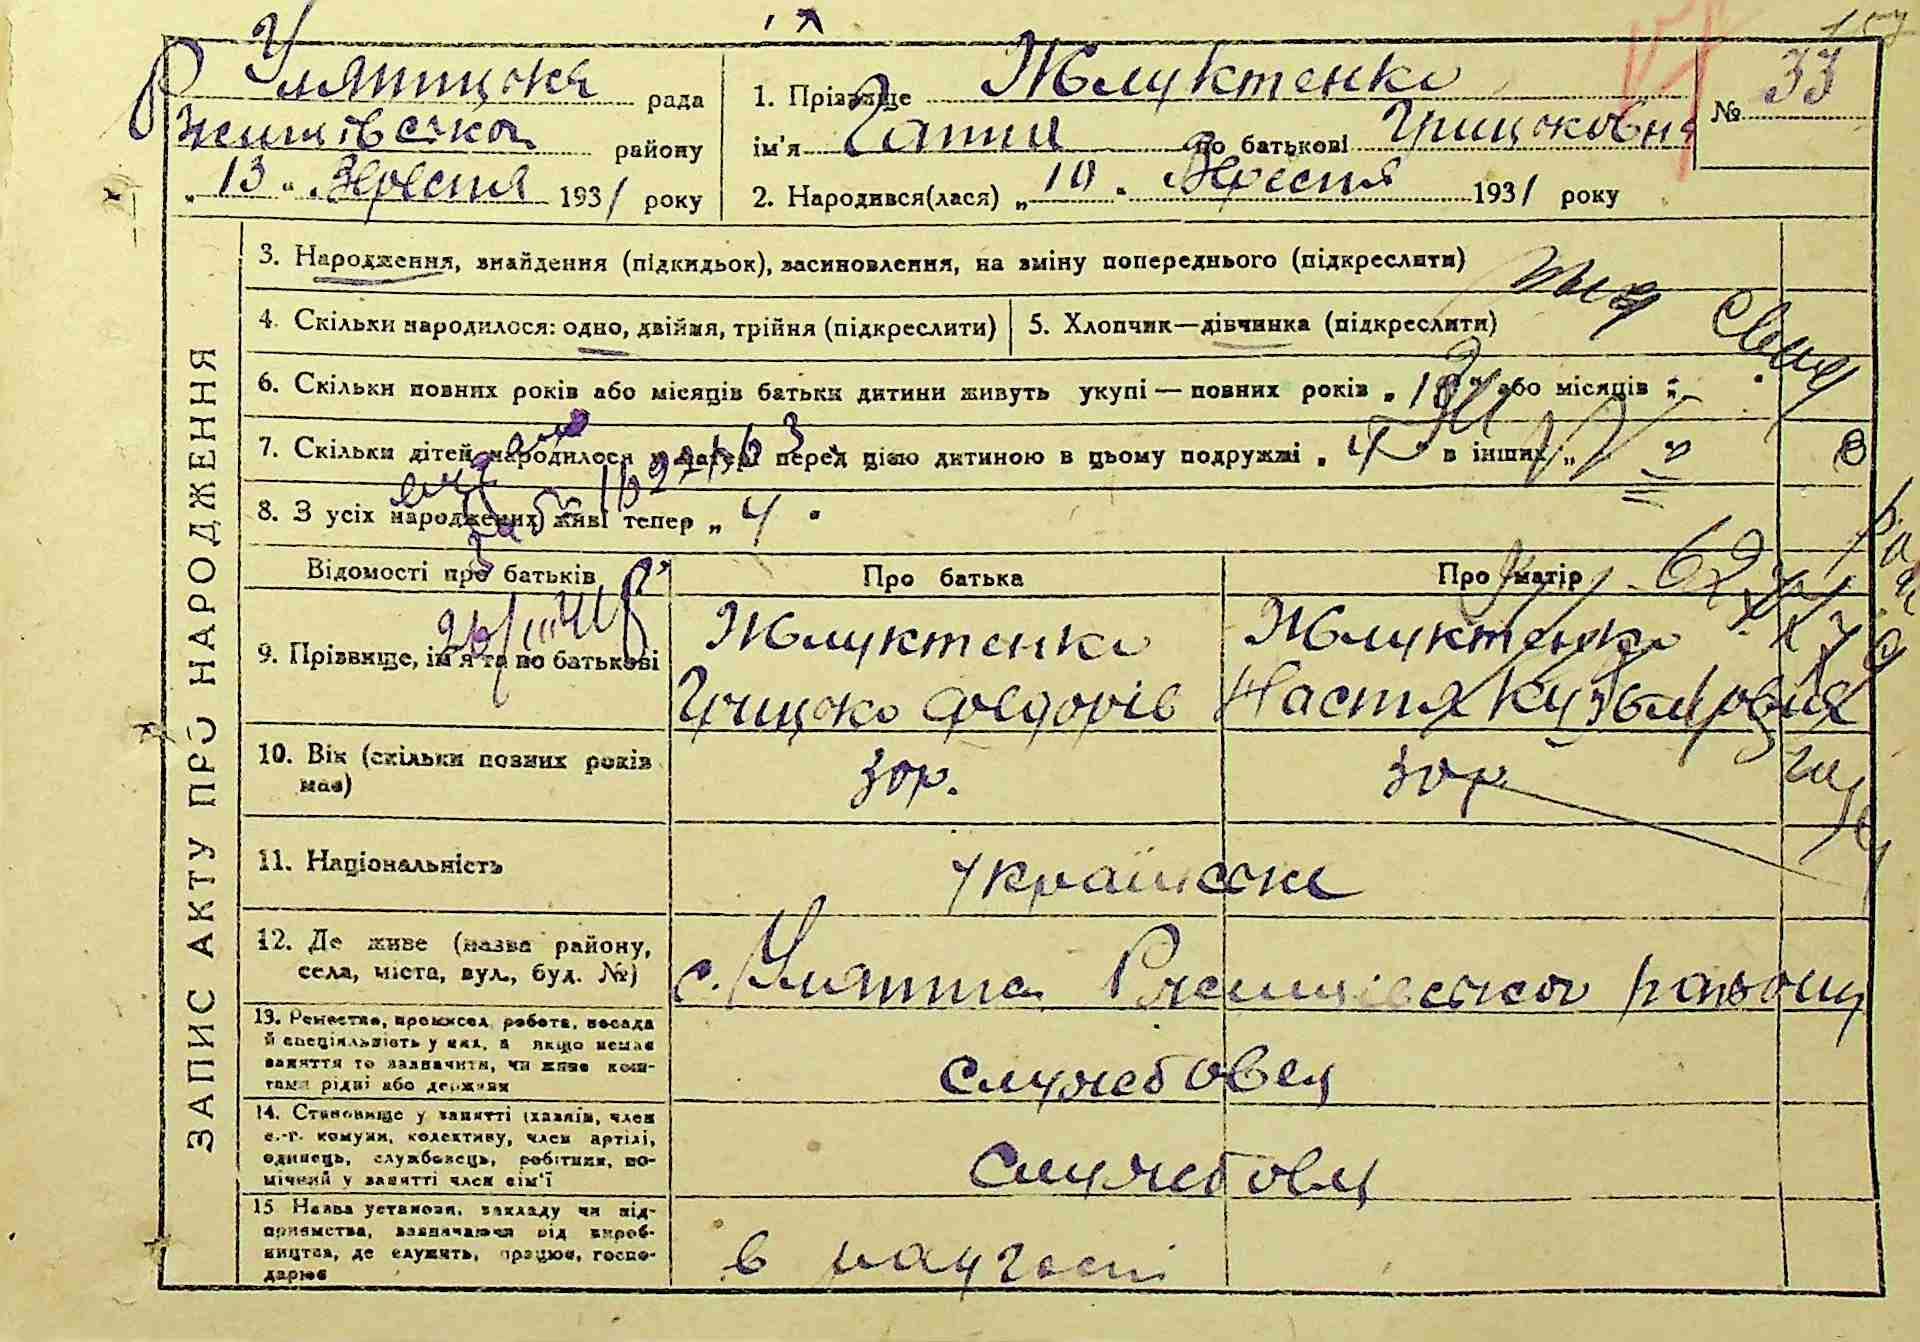 Улятицька рада
Ржищівського району
„13“ Вересня 1931 року
1. Прізвище Жлуктенко
№ 33
ім'я Галя по батькові Грицьковна
2. Народився(лася) „10“ Вересня 1931 року
ЗАПИС АКТУ ПРО НАРОДЖЕННЯ
3. Народження, знайдення (підкидьок), засиновлення, на зміну попереднього (підкреслити)
4. Скільки народилося: одно, двійня, трійня (підкреслити)
5. Хлопчик—дівчинка (підкреслити)
6. Скільки повних років або місяців батьки дитини живуть укупі — повних років „10“ або місяців „
7. Скільки дітей народилося у матері перед цією дитиною в цьому подружжі „4“ в інших „
8. З усіх народжених живі тепер „4“
Відомості про батьків
Про батька
Про матір
9. Прізвище, ім'я та по батькові
Жлуктенко
Грицько Федорів
Жлуктенко
Настя Кузьмовна
10. Вік (скільки повних років має)
30 р.
30 р
11. Національність
українське
12. Де живе (назва району, села, міста, вул., буд. №)
с. Улятта Ржищівського району
13. Ремество, промисел, робота, посада
й спеціяльність у них, а якщо немає
заняття то зазначити, чи живе кош-
тами рідні або держави
службовец
14. Становище у занятті (хазяїн, член
с.-г. комуни, колективу, член артілі,
одинець, службовець, робітник, по-
мічний у занятті член сім'ї
Службовец
15 Назва установи, закладу чи під-
приємства, зазначаючи рід вироб-
ництва, де служить, працює, госпо-
дарює
в